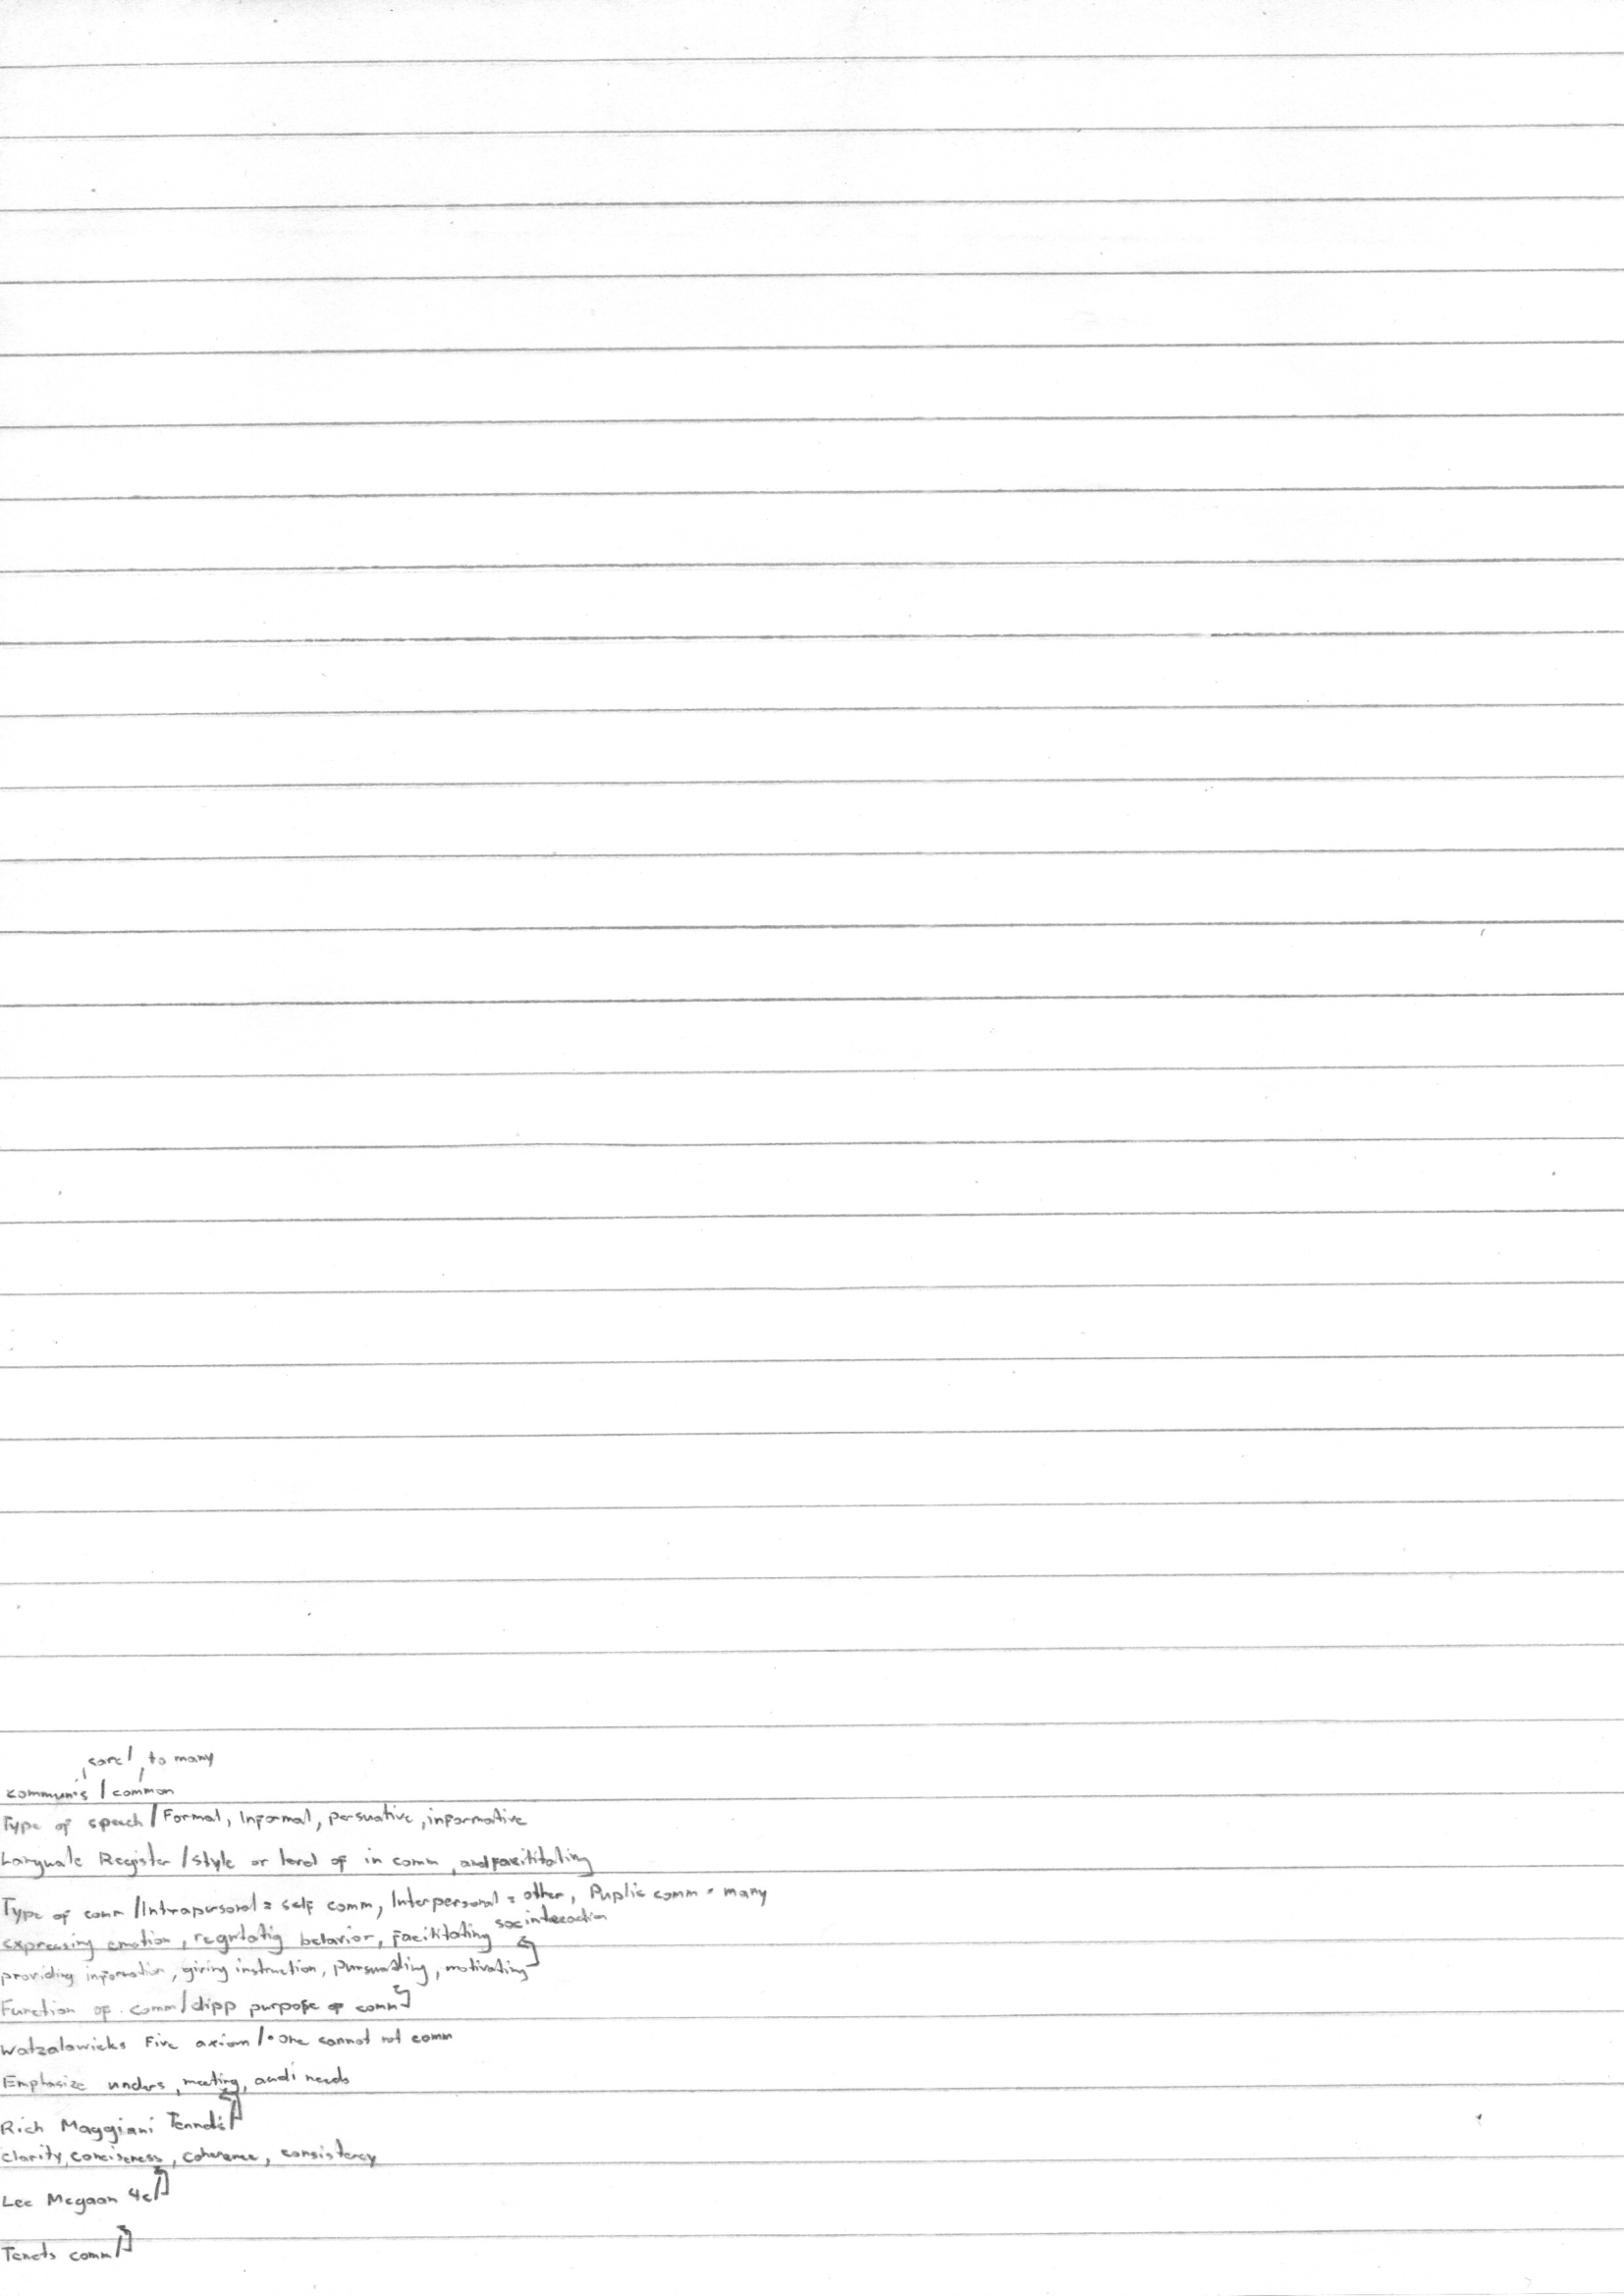 to many
communis / common
Type of speech / Formal, Informal, persuative, informative
Register / style or level of in comm,
Type of comm / Intrapersonal = self comm, Interpersonal = other, Puplic comm = many
soc interaction
expressing emotion, behavior, Facilitating
providing information, giving instruction, motivating
Function of comm / dipp purpose of comm
Watzalawicks Five axiom / • One cannot not comm
Emphasize unders, meeting, audi needs
Rich Maggiani
clarity, conciseness, coherence, consistency
Lee Mcgaan 4c /
Tenets comm /